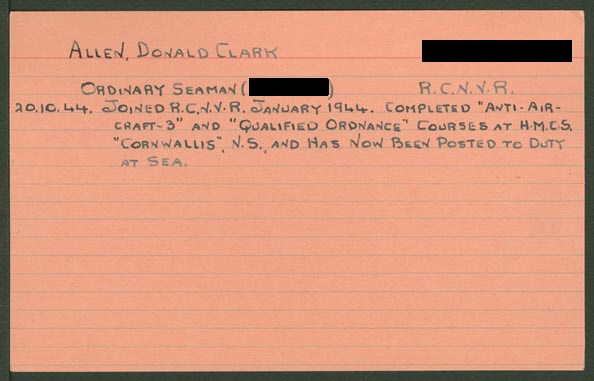 ALLEN, DONALD CLARK
ORDINARY SEAMAN ( ) R.C.N.V.R.
20.10.44. JOINED R.C.N.V.R. JANUARY 1944. COMPLETED "ANTI-AIR-
CRAFT-3" AND "QUALIFIED ORDNANCE" COURSES AT H.M.C.S.
"CORNWALLIS", N.S., AND HAS NOW BEEN POSTED TO DUTY
AT SEA.